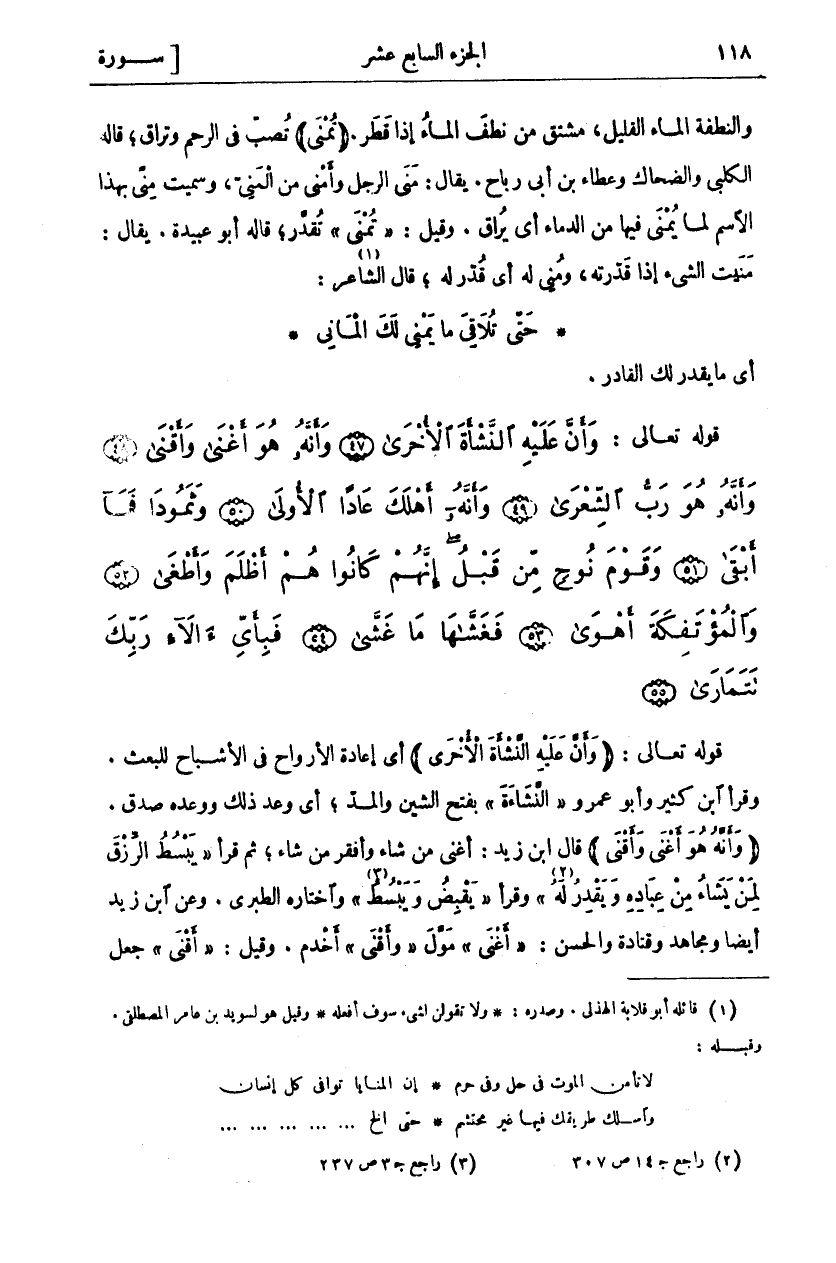 ١١٨ الجزء السابع عشر [ ســـورة
والنطفة المـاء القليل، مشتق من نطف المـاُء إذا قَطَر . ﴿ تُمْنَى ﴾ تُصبّ فى الرحم وتراق؛ قاله
الكلبى والضحاك وعطاء بن أبى رباح . يقال : مَنَى الرجل وأَمْنى من الْمَنِىّ، وسميت مِنًى بهذا
الأسم لمـا يُمْنَى فيها من الدماء أى يُراق . وقيل : « تُمْنَى » تُقدَّر؛ قاله أبو عبيدة . يقال :
مَنَيت الشىء إذا قَدّرته، ومُنِى له أى قُدّر له ؛ قال الشاعر (١) :
* حَتَّى تُلَاقِىَ ما يَمْنِى لَكَ الْمَـانِى *
أى مايقدر لك القادر .
قوله تعـالى : وَأَنَّ عَلَيْهِ ٱلنَّشْأَةَ ٱلْأُخْرَىٰ ﴿٤٧﴾ وَأَنَّهُۥ هُوَ أَغْنَىٰ وَأَقْنَىٰ ﴿٤٨﴾
وَأَنَّهُۥ هُوَ رَبُّ ٱلشِّعْرَىٰ ﴿٤٩﴾ وَأَنَّهُۥٓ أَهْلَكَ عَادًا ٱلْأُولَىٰ ﴿٥٠﴾ وَثَمُودَا فَمَـآ
أَبْقَىٰ ﴿٥١﴾ وَقَوْمَ نُوحٍ مِّن قَبْـلُ ۖ إِنَّهُـمْ كَانُوا هُـمْ أَظْلَمَ وَأَطْغَىٰ ﴿٥٢﴾
وَٱلْمُؤْتَفِكَةَ أَهْـوَىٰ ﴿٥٣﴾ فَغَشَّـٰهَا مَا غَشَّىٰ ﴿٥٤﴾ فَبِأَىِّ ءَالَآءِ رَبِّكَ
تَتَمَارَىٰ ﴿٥٥﴾
قوله تعـالى : ﴿ وَأَنَّ عَلَيْهِ النَّشْأَةَ الْأُخْرَى ﴾ أى إعادة الأرواح فى الأشـباح للبعث .
وقرأ آبن كثير وأبو عمرو « النَّشَاءَةَ » بفتح الشين والمـدّ ؛ أى وعد ذلك ووعده صدق .
﴿ وَأَنَّهُ هُوَ أَغْنَى وَأَقْنَى ﴾ قال ابن زيد : أغنى من شاء وأفقر من شاء ؛ ثم قرأ « يَبْسُطُ الرِّزْقَ
لِمَنْ يَشَاءُ مِنْ عِبَادِهِ وَيَقْدِرُ لَهُ (٢) » وقرأ « يَقْبِضُ وَيَبْسُطُ (٣) » وآختاره الطبرى . وعن آبن زيد
أيضا ومجاهد وقتادة والحسن : « أَغْنَى » مَوَّلَ « وأَقْنَى » أَخْدم . وقيل : « أَقْنَى » جعل
(١) قائله أبو قلابة الهذلى . وصدره : * ولا تقولن لشىء سوف أفعله * وقيل هو لسويد بن عامر المصطلقى .
وقبـــله :
لاتأمن الموت فى حل وفى حرم * إن المنايا توافى كل إنسان
وآسـلك طريقك فيهـا غير محتشم * حتى الخ ... ... ... ... ...
(٢) راجع جـ ١٤ ص ٣٠٧ (٣) راجع جـ ٣ ص ٢٣٧